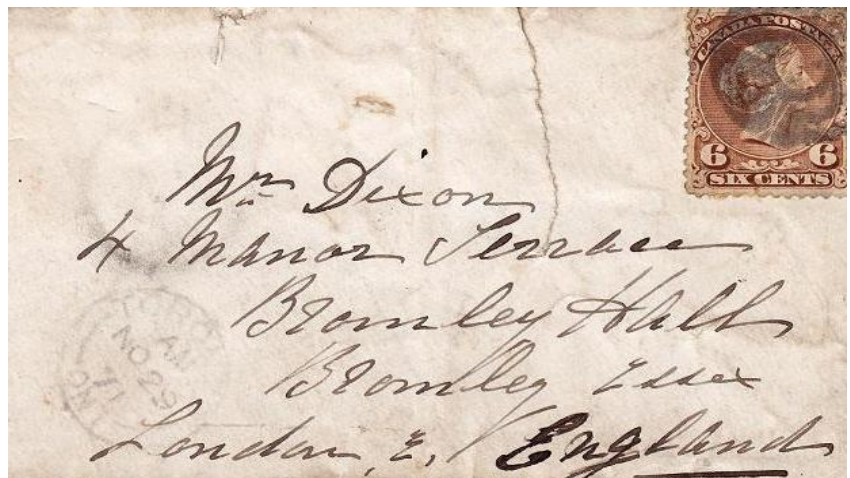 CANADA POSTAGE
6 6
SIX CENTS
Mrs Dixon
4 Manor Terrace
Bromley Hall
Bromley Essex
London, E, England
TORONTO
AM
NO 29
71
ONT